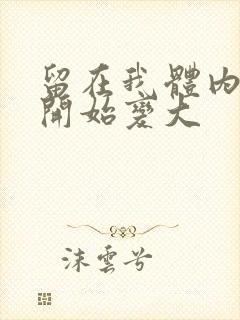 留在我體內
開始變大
沫雲兮